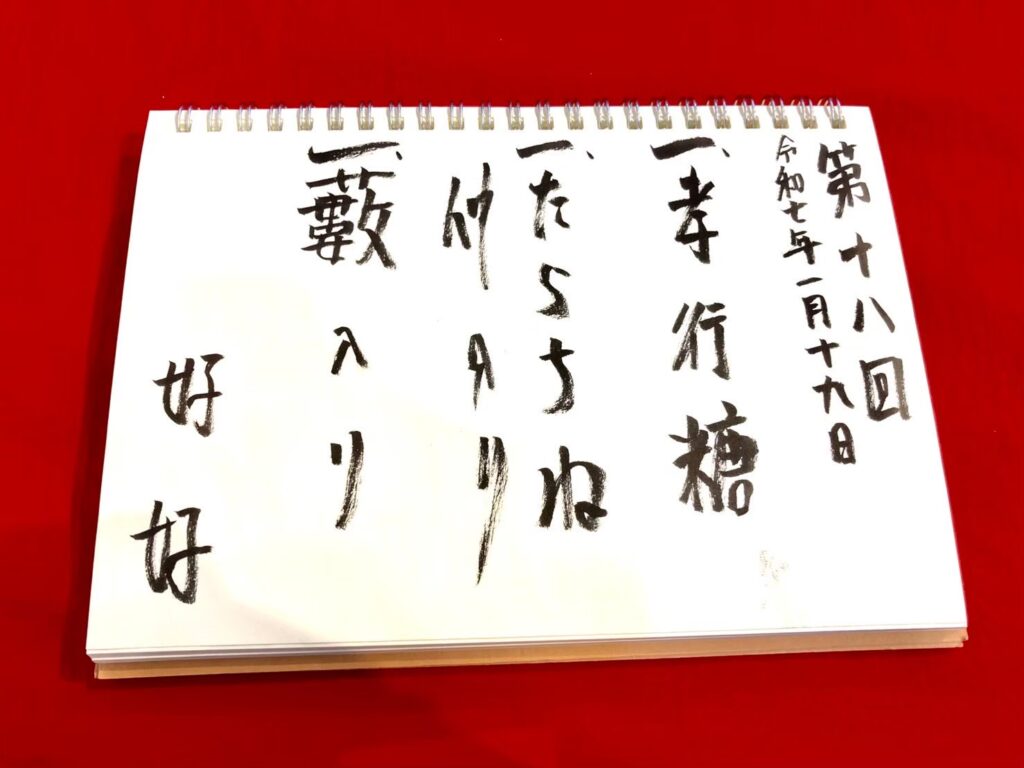 第十八回
令和七年一月十九日
一、孝行糖
一、たらちね
仲入り
一、藪入り
好好